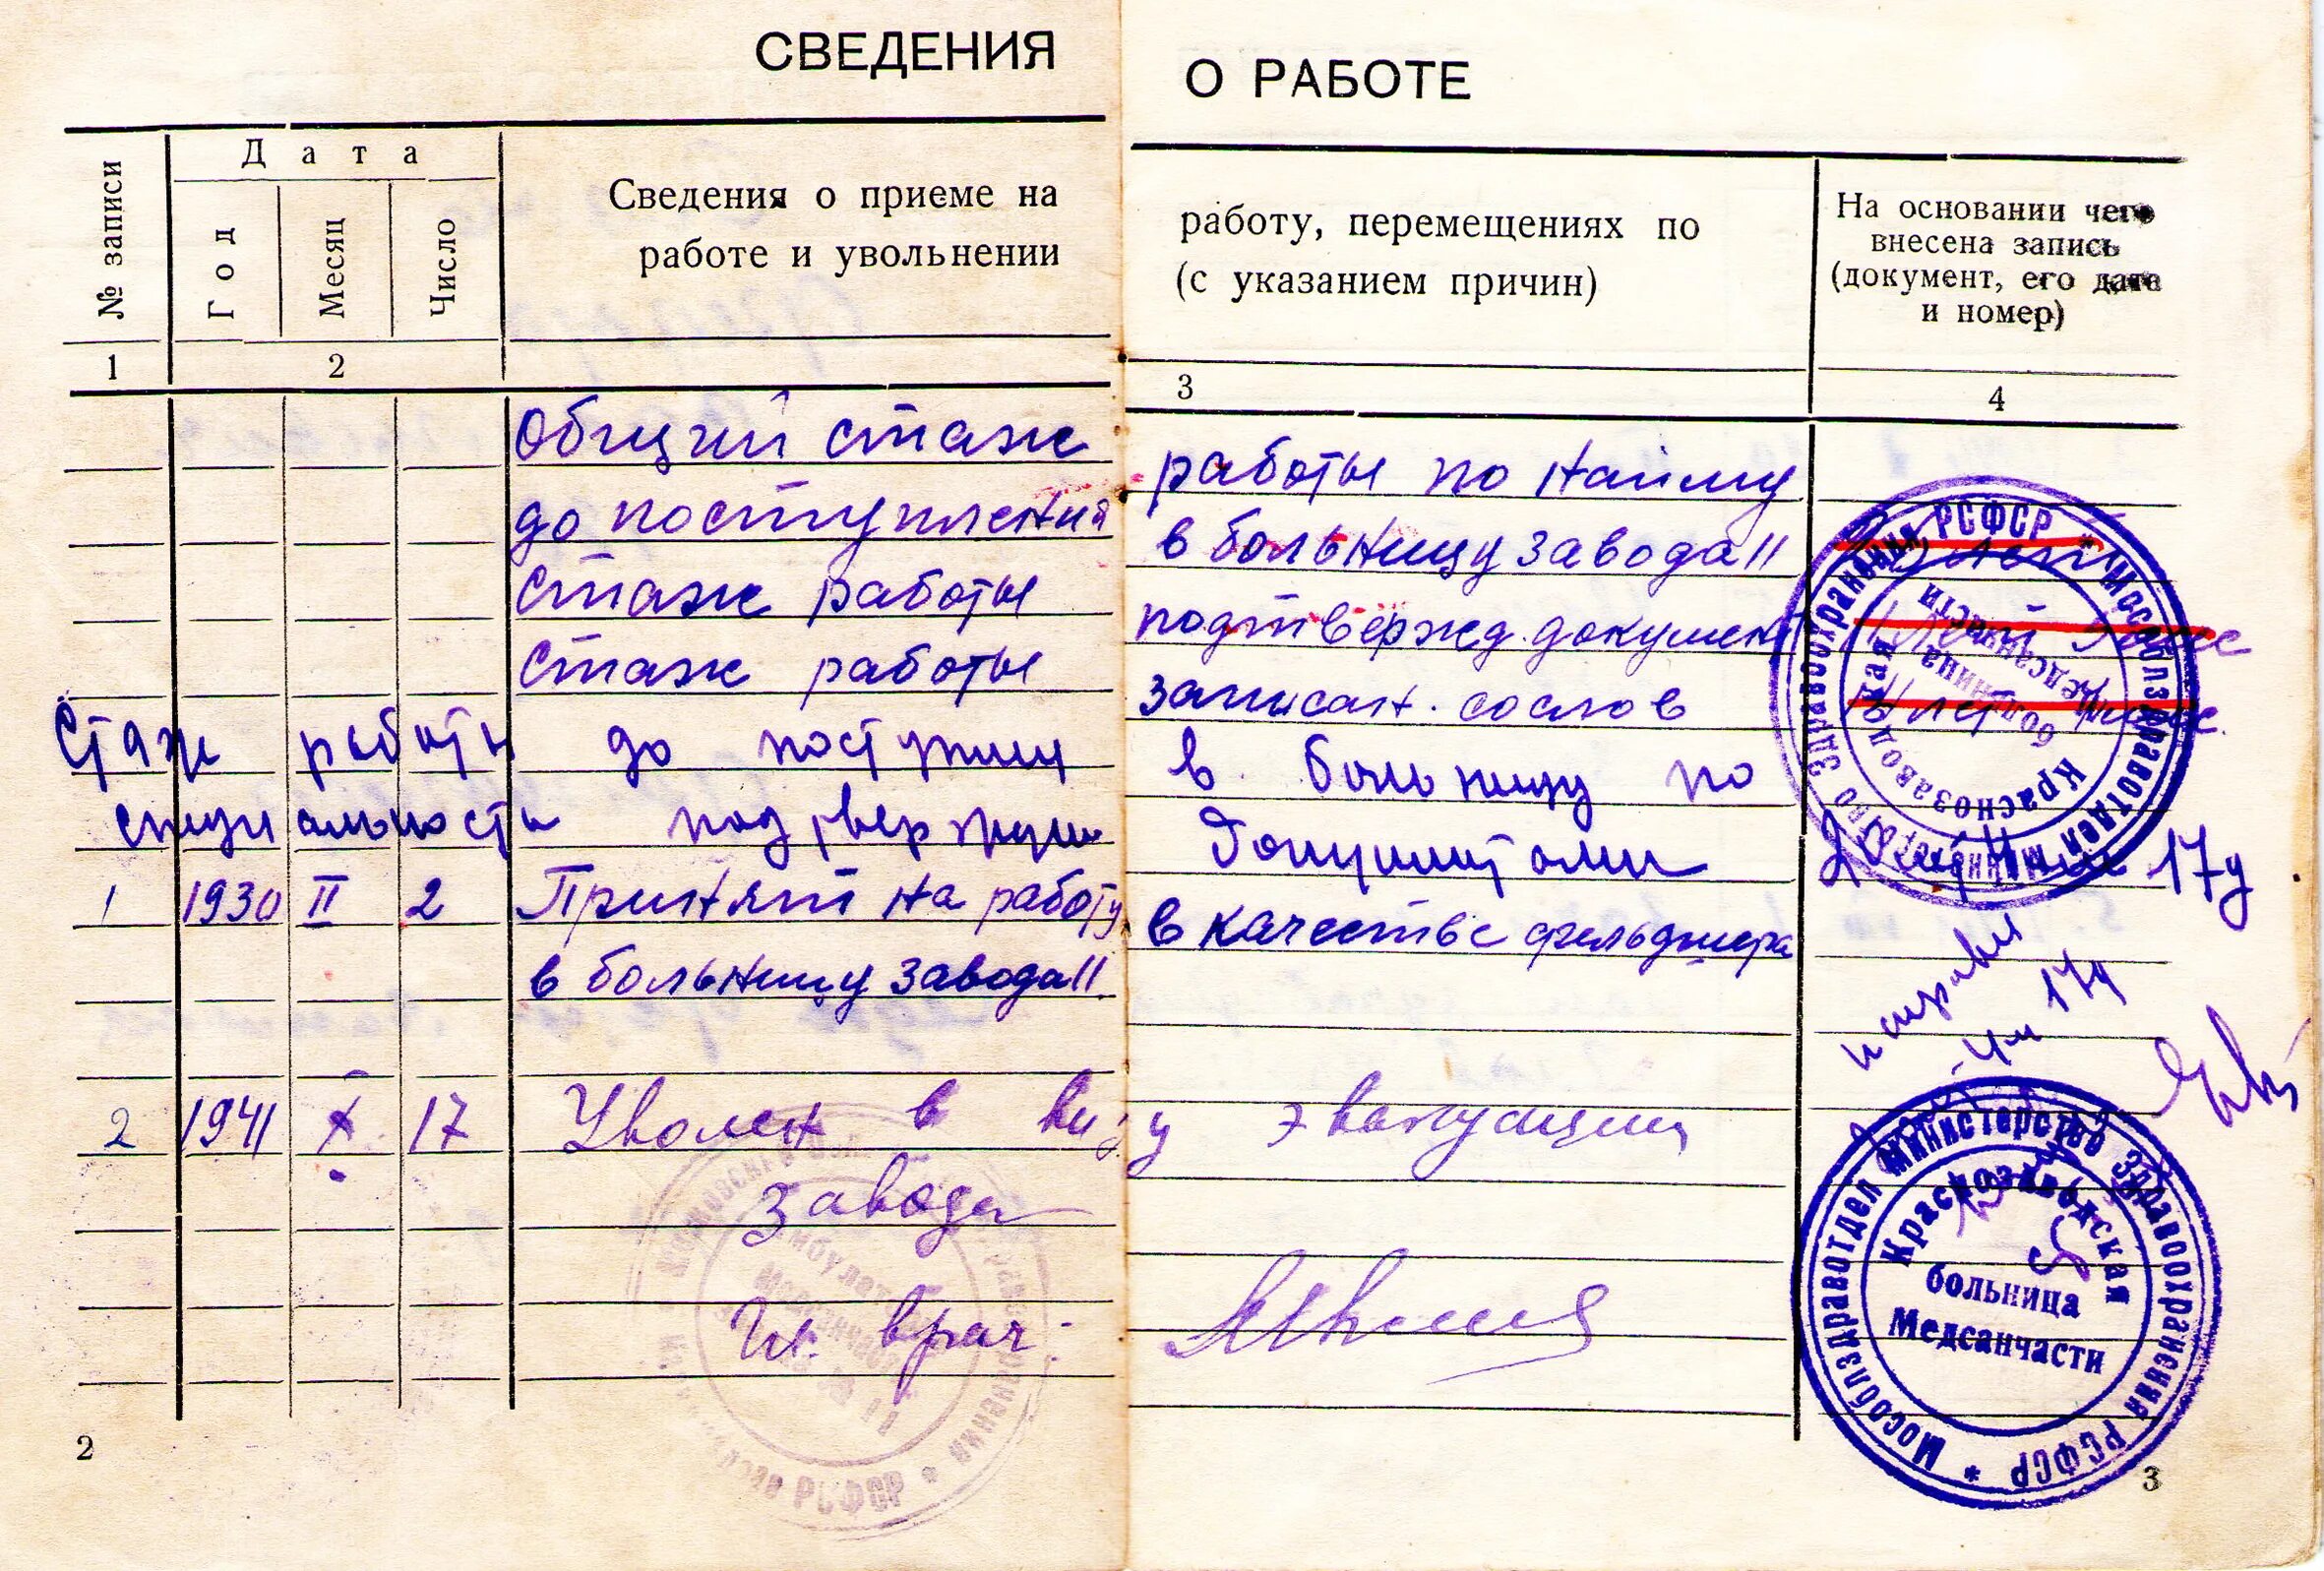 СВЕДЕНИЯ О РАБОТЕ
№ записи
Дата
Год
Месяц
Число
Сведения о приеме на работу, перемещениях по
работе и увольнении (с указанием причин)
На основании чего
внесена запись
(документ, его дата
и номер)
1 2 3 4
Общий стаж работы по найму
до поступления в больницу завода 11
Стаж работы подтвержд. документ
Стаж работы записан. со слов
Стаж работы до поступлен в больницу по
специальности подтвержден документами 17д
1 1930 II 2 Принят на работу в качестве фельдшера
в больницу завода 11
2 1941 X 17 Уволен в виду эвакуации
завода
Гл. врач:
Министерство Здравоохранения РСФСР * Мособлздравотдел
Краснозаводская
больница
Медсанчасти
Министерство Здравоохранения РСФСР * Мособлздравотдел
Краснозаводская
больница
Медсанчасти
РСФСР
2
3